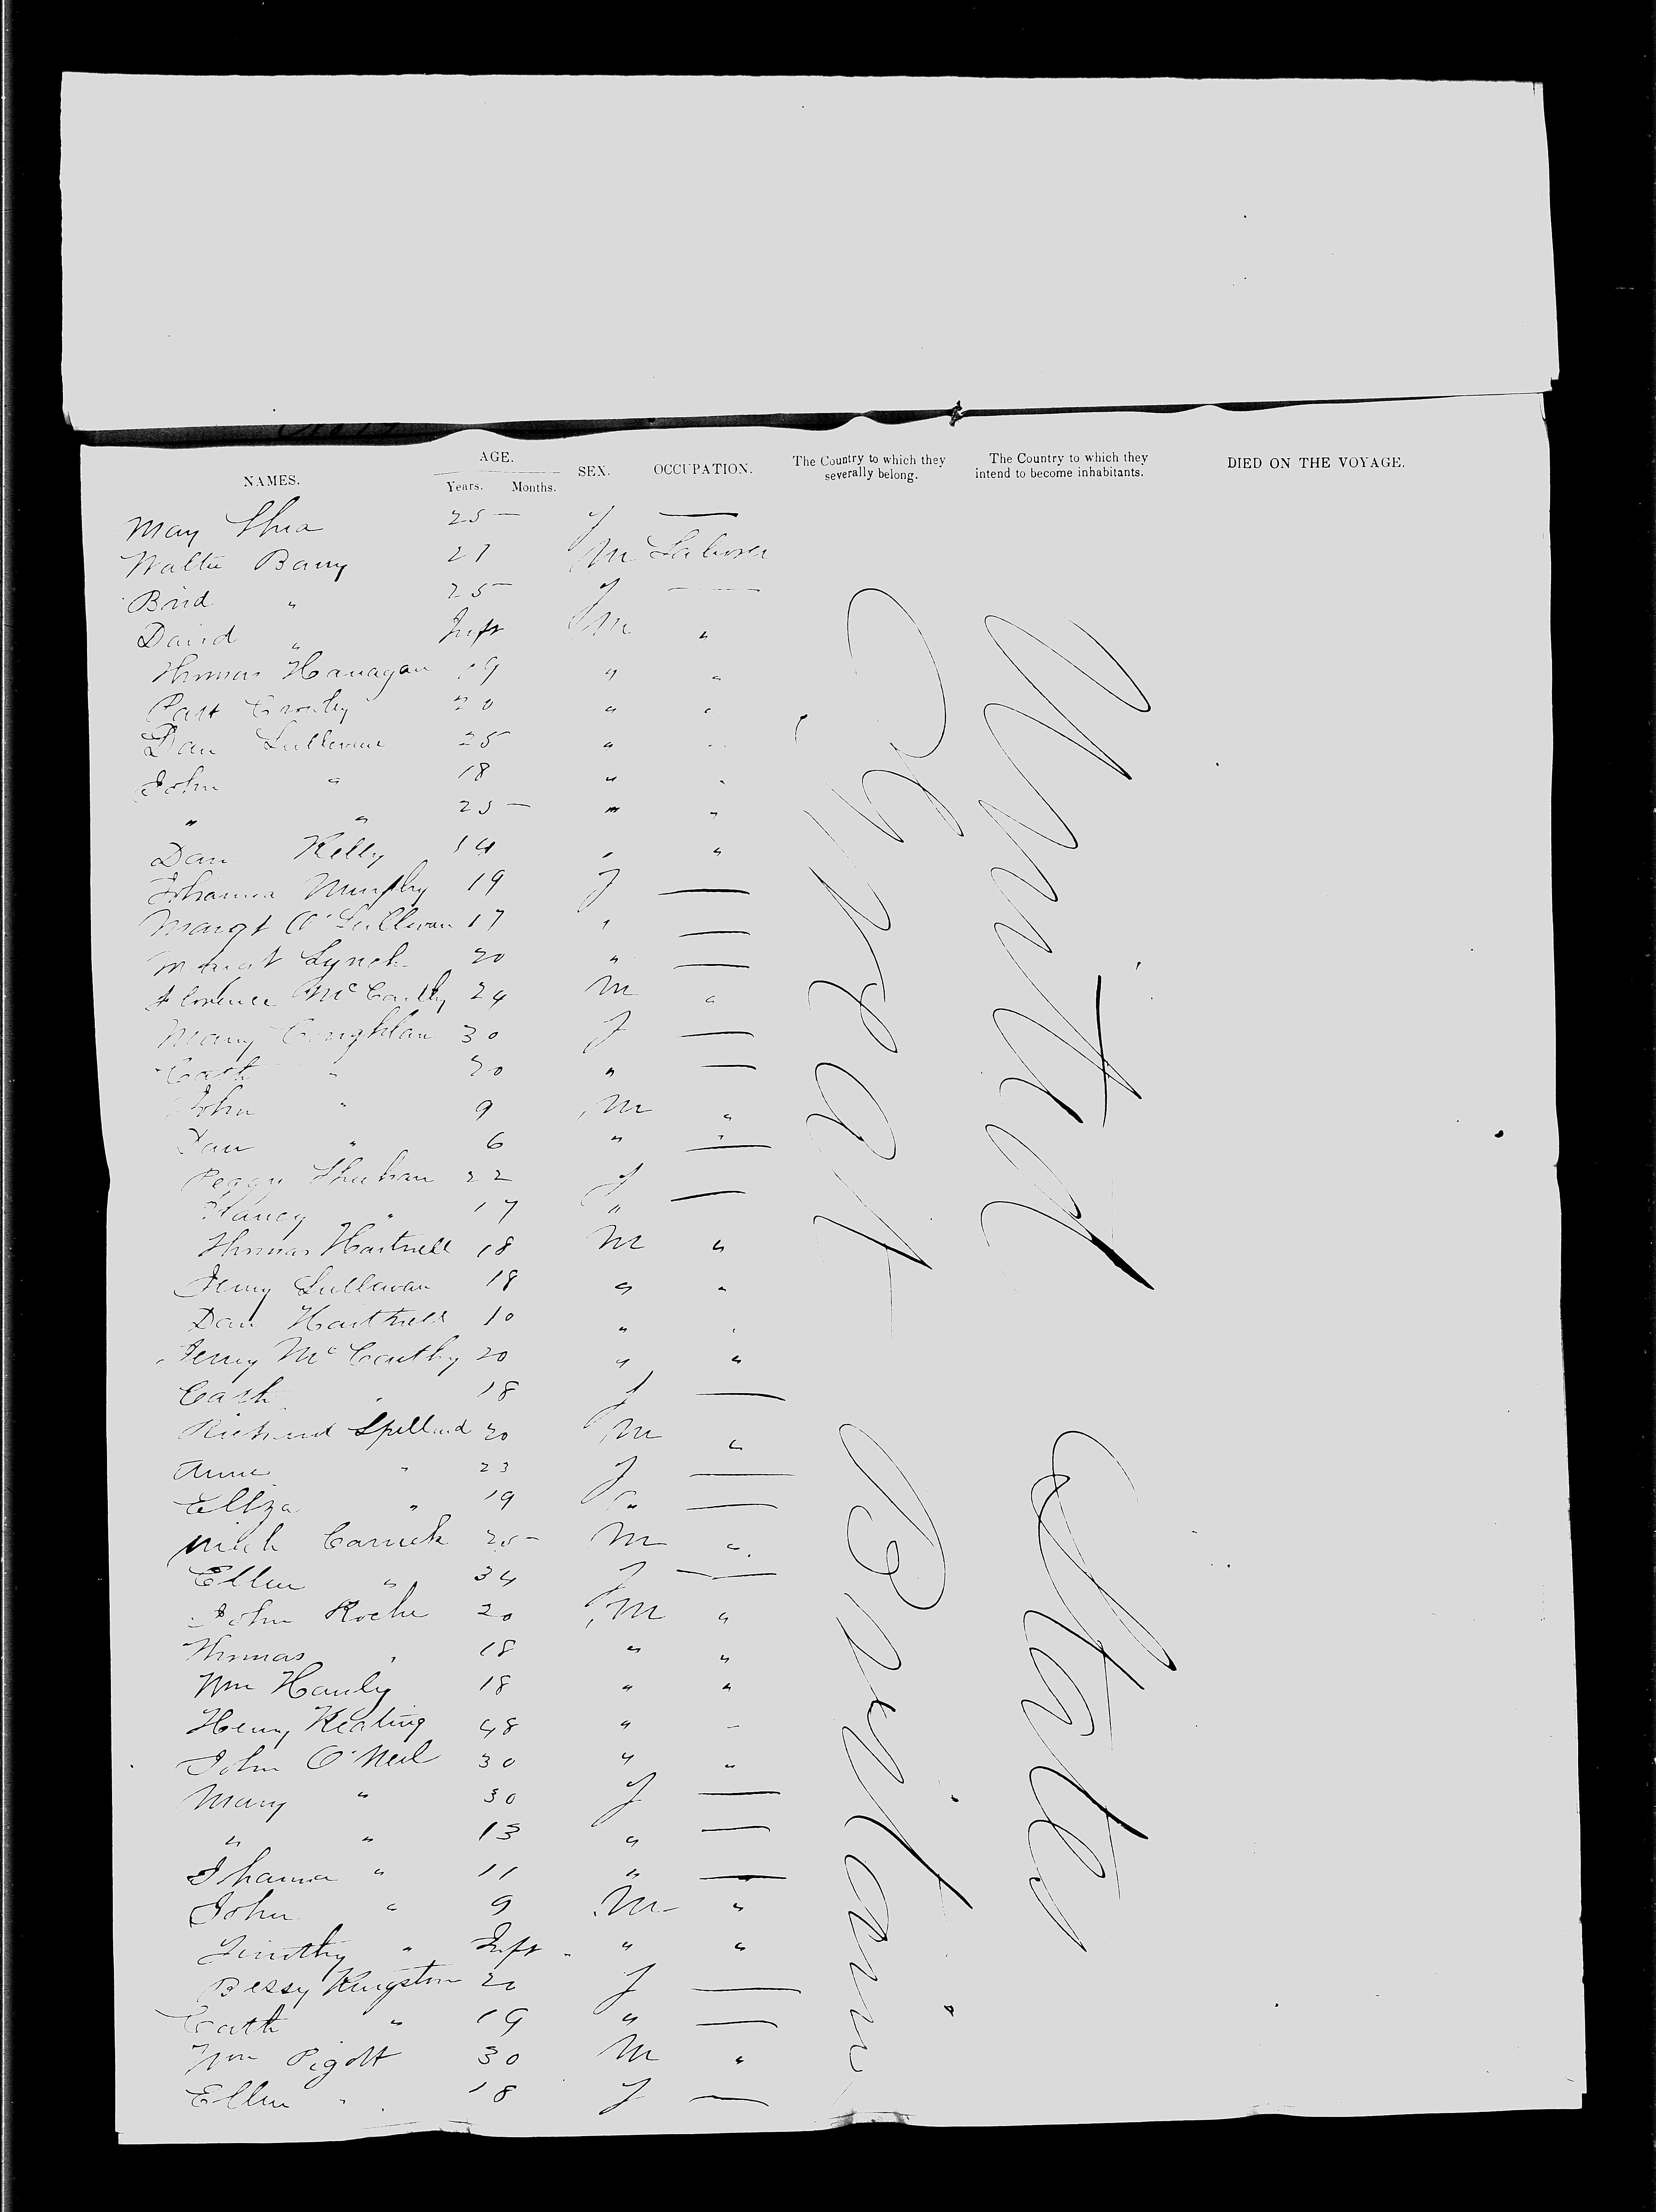 NAMES. AGE. SEX. OCCUPATION. The Country to which they severally belong. The Country to which they intend to become inhabitants. DIED ON THE VOYAGE.
Years. Months.
Mary Shea 25 f —
Walter Barry 27 M Laborer
Brid " 25 f —
David " Inft M "
Thomas Hanagan 19 " "
Patt Crowly 20 " "
Dan Sullivan 25 " "
John " 18 " "
" " 25 " "
Dan Kelly 14 " "
Johanna Murphy 19 f —
Margt O'Sullivan 17 " —
Margt Lynch 20 " —
Florence McCarthy 24 M "
Mary Coughlan 30 f —
Cath " 20 " —
John " 9 M "
Dan " 6 " "
Peggy Sheehan 22 f —
Nancy " 17 "
Thomas Hartnell 18 M "
Jerry Sullivan 18 " "
Dan Hartnell 10 " "
Jerry McCarthy 20 " "
Cath " 18 f —
Richard Spelland 20 M "
Anne " 23 f —
Elliza " 19 " —
Mich Carrick 25 M "
Ellen " 34 f —
John Roche 20 M "
Thomas " 18 " "
Wm Hanly 18 " "
Henry Keating 48 " "
John O'Neil 30 " "
Mary " 30 f —
" " 13 " —
Johanna " 11 " —
John " 9 M "
Timothy " Inft " "
Bessy Kingston 20 f —
Cath " 19 " —
Wm Pigott 30 M "
Ellen " 18 f —
Great Britain
United States